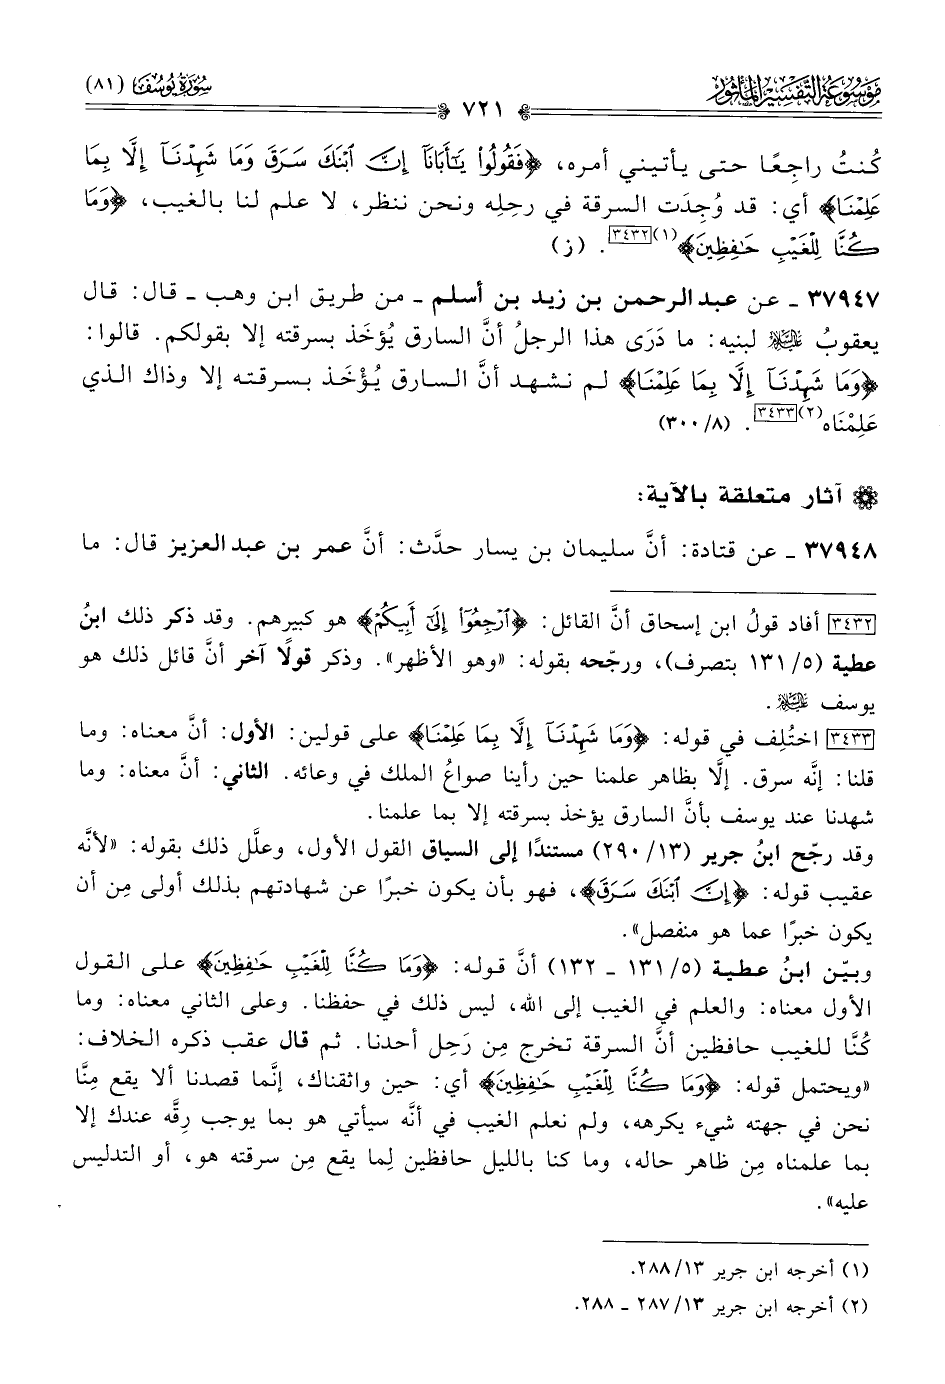 مَوْسُوعَة التَّفْسِير المَأْثُور
سُورَة يُوسُف (٨١)
٧٢١
كُنتُ راجِعًا حتى يأتيني أمره، ﴿فَقُولُواْ يَٰٓأَبَانَآ إِنَّ ٱبۡنَكَ سَرَقَ وَمَا شَهِدۡنَآ إِلَّا بِمَا
عَلِمۡنَا﴾ أي: قد وُجِدَت السرقة في رحلِه ونحن ننظر، لا علم لنا بالغيب، ﴿وَمَا
كُنَّا لِلۡغَيۡبِ حَٰفِظِينَ﴾(١)[٣٤٣٢]. (ز)
٣٧٩٤٧ ـ عن عبد الرحمن بن زيد بن أسلم ـ من طريق ابن وهب ـ قال: قال
يعقوبُ عليه السلام لبنيه: ما دَرَى هذا الرجلُ أنَّ السارق يُؤخَذ بسرقته إلا بقولكم. قالوا:
﴿وَمَا شَهِدۡنَآ إِلَّا بِمَا عَلِمۡنَا﴾ لم نشهد أنَّ السارق يُؤْخَذ بسرقته إلا وذاك الذي
عَلِمْناه(٢)[٣٤٣٣]. (٣٠٠/٨)
آثار متعلقة بالآية:
٣٧٩٤٨ ـ عن قتادة: أنَّ سليمان بن يسار حدَّث: أنَّ عمر بن عبد العزيز قال: ما
[٣٤٣٢] أفاد قولُ ابن إسحاق أنَّ القائل: ﴿ٱرۡجِعُوٓاْ إِلَىٰٓ أَبِيكُمۡ﴾ هو كبيرهم. وقد ذكر ذلك ابنُ
عطية (١٣١/٥ بتصرف)، ورجّحه بقوله: «وهو الأظهر». وذكر قولًا آخر أنَّ قائل ذلك هو
يوسف عليه السلام.
[٣٤٣٣] اختُلِف في قوله: ﴿وَمَا شَهِدۡنَآ إِلَّا بِمَا عَلِمۡنَا﴾ على قولين: الأول: أنَّ معناه: وما
قلنا: إنَّه سرق. إلَّا بظاهر علمنا حين رأينا صواعُ الملك في وعائه. الثاني: أنَّ معناه: وما
شهدنا عند يوسف بأنَّ السارق يؤخذ بسرقته إلا بما علمنا.
وقد رجّح ابنُ جرير (٢٩٠/١٣) مستندًا إلى السياق القول الأول، وعلَّل ذلك بقوله: «لأنَّه
عقيب قوله: ﴿إِنَّ ٱبۡنَكَ سَرَقَ﴾، فهو بأن يكون خبرًا عن شهادتهم بذلك أولى مِن أن
يكون خبرًا عما هو منفصل».
وبيّن ابنُ عطية (١٣١/٥ ـ ١٣٢) أنَّ قوله: ﴿وَمَا كُنَّا لِلۡغَيۡبِ حَٰفِظِينَ﴾ على القول
الأول معناه: والعلم في الغيب إلى الله، ليس ذلك في حفظنا. وعلى الثاني معناه: وما
كُنَّا للغيب حافظين أنَّ السرقة تخرج مِن رَحِل أحدنا. ثم قال عقب ذكره الخلاف:
«ويحتمل قوله: ﴿وَمَا كُنَّا لِلۡغَيۡبِ حَٰفِظِينَ﴾ أي: حين واثقناك، إنَّما قصدنا ألا يقع مِنَّا
نحن في جهته شيء يكرهه، ولم نعلم الغيب في أنَّه سيأتي هو بما يوجب رِقَّه عندك إلا
بما علمناه مِن ظاهر حاله، وما كنا بالليل حافظين لِما يقع مِن سرقته هو، أو التدليس
عليه».
(١) أخرجه ابن جرير ٢٨٨/١٣.
(٢) أخرجه ابن جرير ٢٨٧/١٣ ـ ٢٨٨.